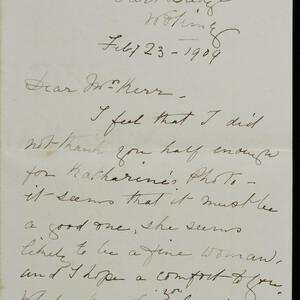 Woking
Feb/ 23 - 1909
Dear Mrs Kerr -
I feel that I did
not thank you half enough
for Katharine's Photo -
it seems that it must be
a good one, she seems
likely to be a fine woman,
and I hope a comfort to you.